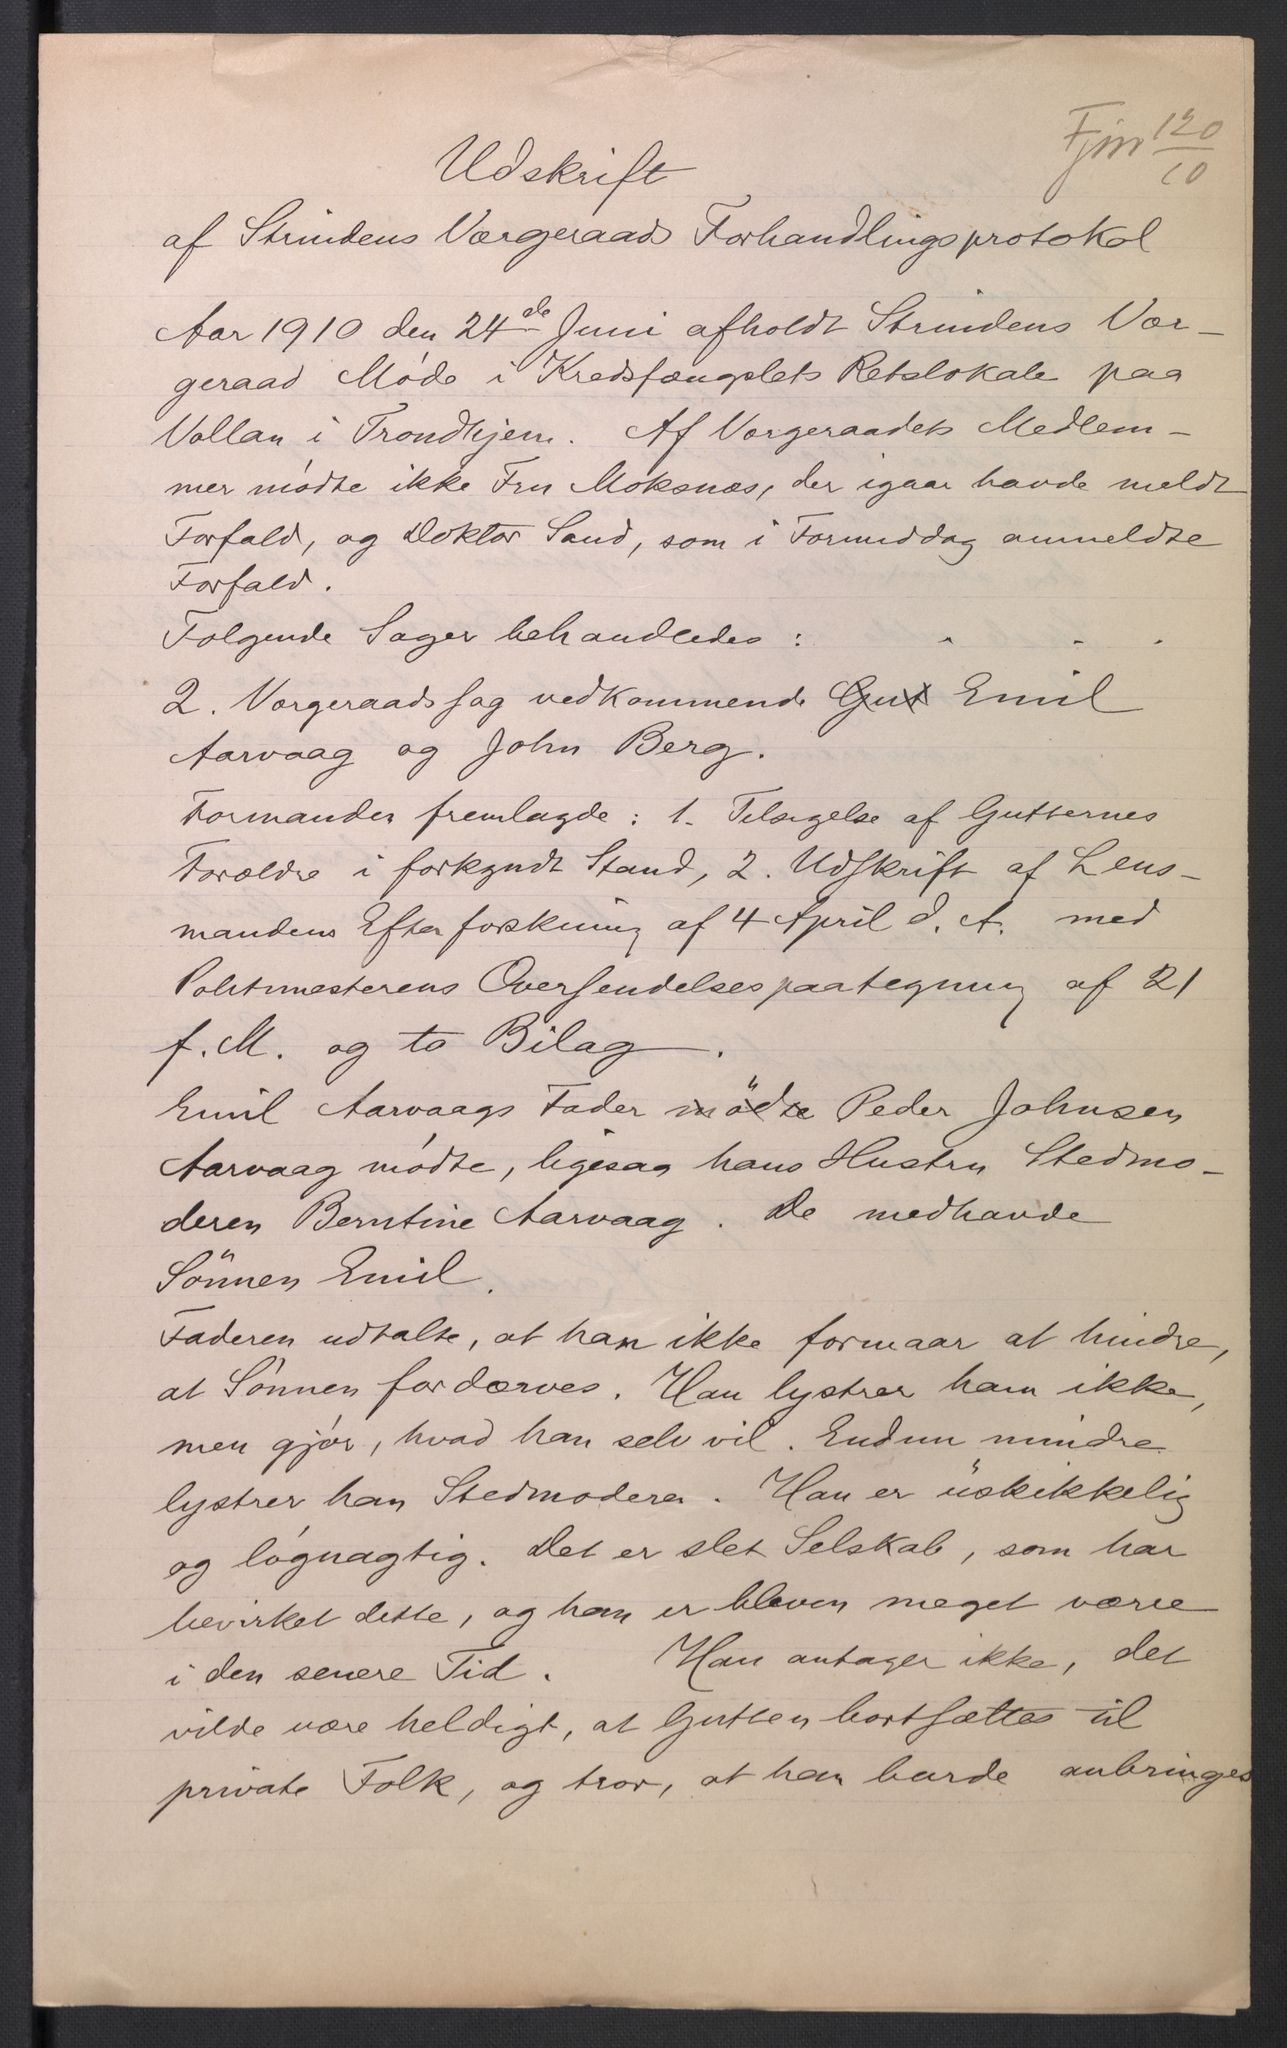 120
10
Udskrift
af Strindens Værgeraads Forhandlingsprotokol
Aar 1910 den 24de Juni afholdt Strindens Vær-
geraad Møde i Kredsfængslets Retslokale paa
Vollan i Trondhjem. Af Værgeraadets Medlem-
mer mødte ikke Fru Moksnæs, der igaar havde meldt
Forfald, og Doktor Sand, som i Formiddag anmeldte
Forfald.
Følgende Sager behandledes : - - -
2. Værgeraadssag vedkommende Gut Emil
Aarvaag og John Berg.
Formanden fremlagde : 1. Tilsigelse af Gutternes
Forældre i forkyndt Stand, 2. Udskrift af Lens-
mandens Efterforskning af 4 April d. A. med
Politimesterens Oversendelsespaategning af 21
f. M. og to Bilag.
Emil Aarvaags Fader mödte Peder Johnsen
Aarvaag mødte, ligesaa hans Hustru Stedmo-
deren Berntine Aarvaag. De medhavde
Sönnen Emil.
Faderen udtalte, at han ikke formaar at hindre,
at Sønnen fordærves. Han lystrer ham ikke,
men gjør, hvad han selv vil. Endnu mindre
lystrer han Stedmoderen. Han er uskikkelig
og løgnagtig. Det er slet Selskab, som har
bevirket dette, og han er bleven meget værre
i den senere Tid. Han antager ikke, det
vilde være heldigt, at Gutten bortsættes til
private Folk, og tror, at han burde anbringes